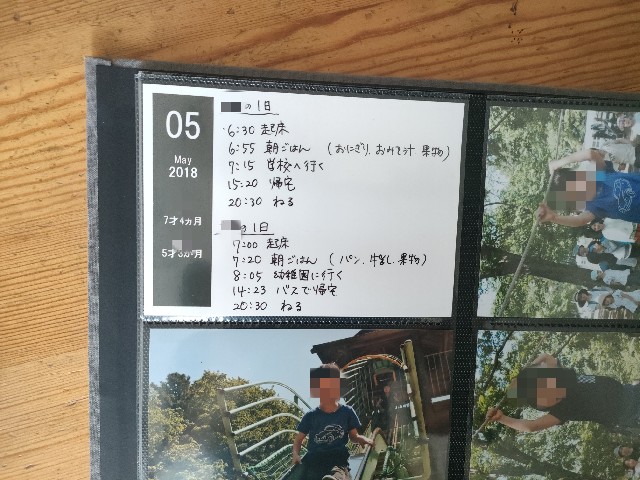 05
May
2018
7才4ヵ月
5才 ヵ月
の1日
6:30 起床
6:55 朝ごはん (おにぎり、おみそ汁 果物)
7:15 学校へ行く
15:20 帰宅
20:30 ねる
の1日
7:00 起床
7:20 朝ごはん (パン、牛乳、果物)
8:05 幼稚園に行く
14:23 バスで帰宅
20:30 ねる